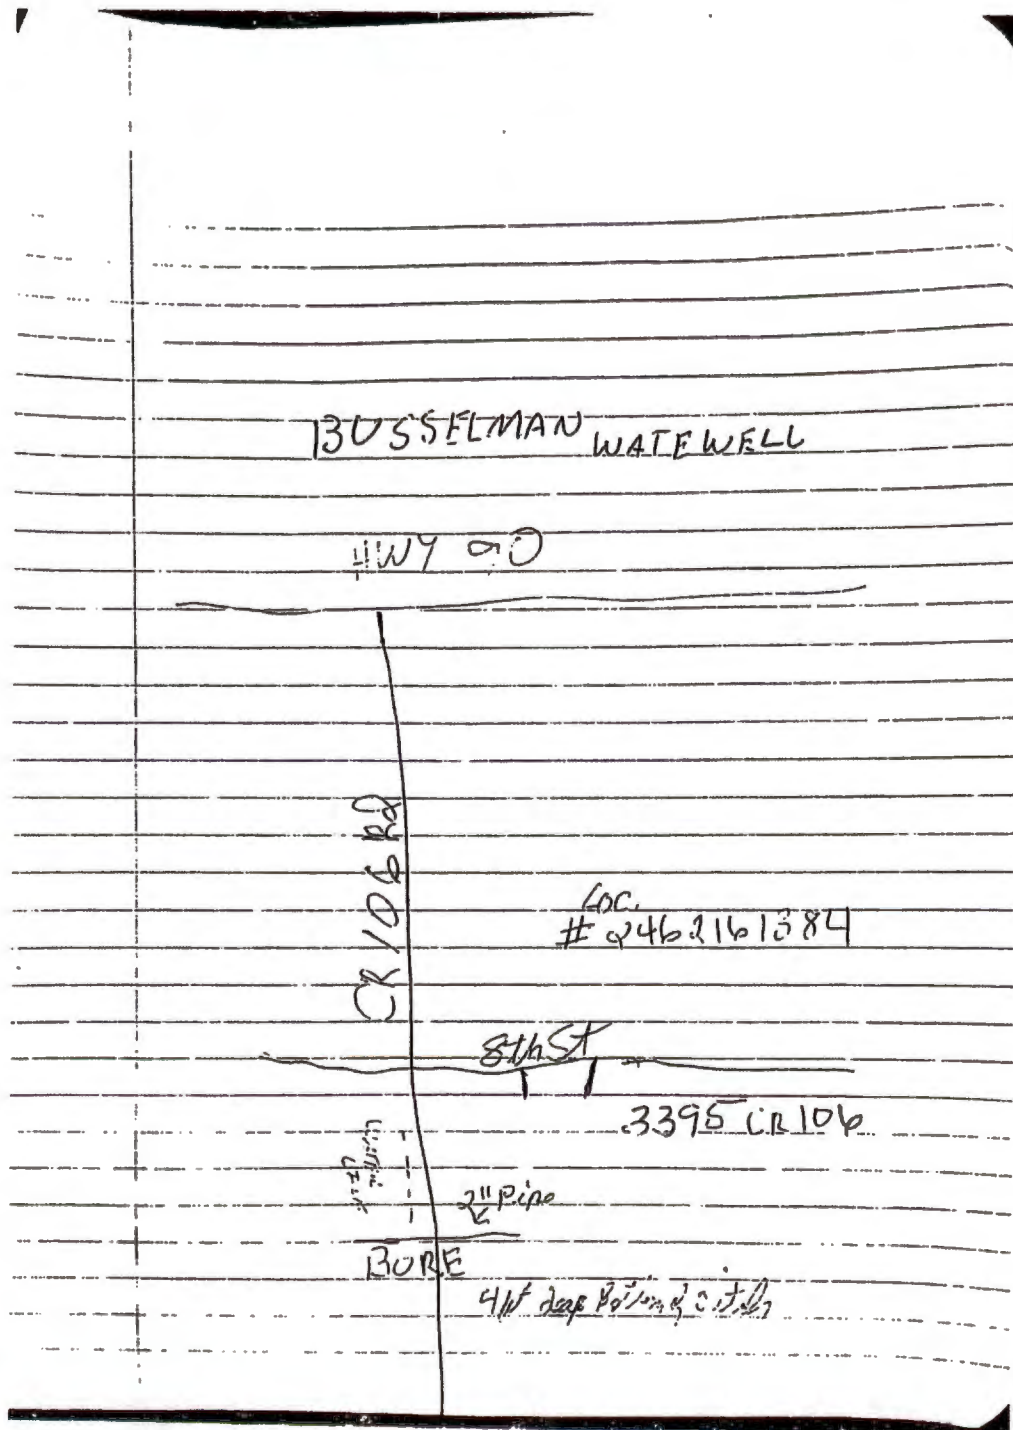 BUSSELMAN WATEWELL
HWY 90
CR 106 Rd
Loc.
# 2462161384
8th St
3395 CR 106
2" Pipe
BORE
deep